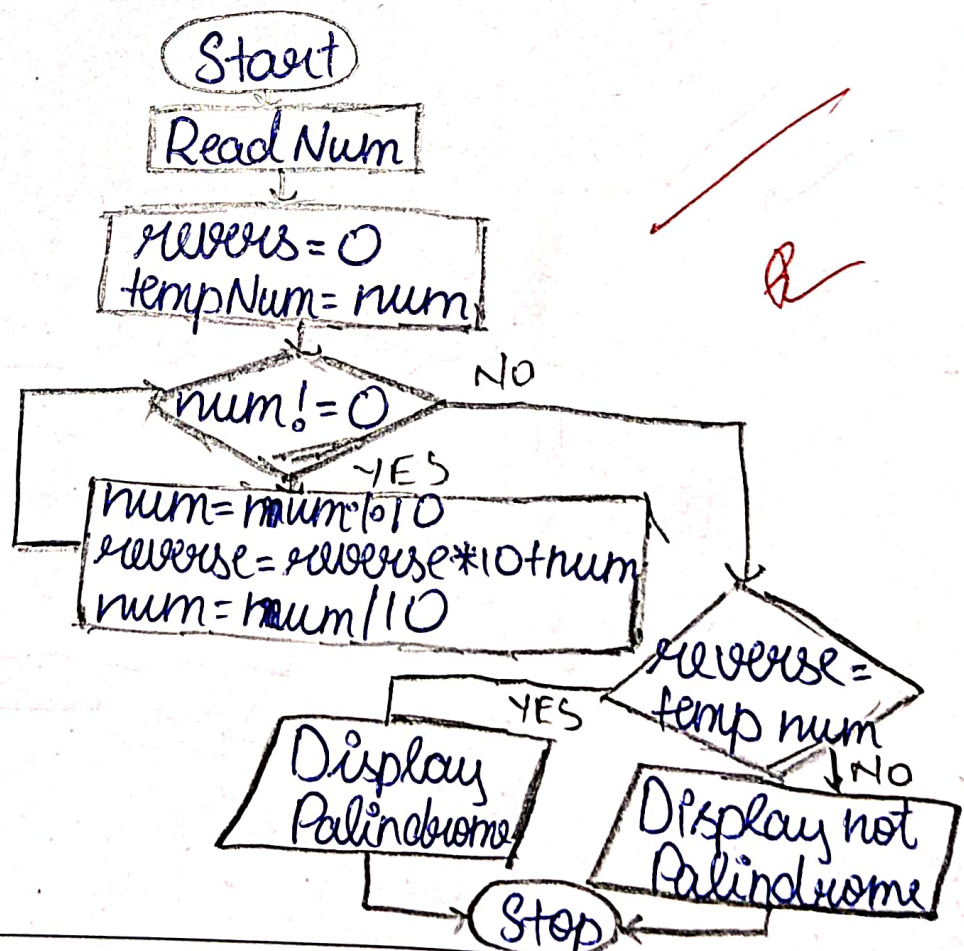 Start
Read Num
revers = 0
tempNum = num
num! = 0
NO
YES
num = num%10
reverse = reverse*10+num
num = num/10
reverse =
temp num
YES
NO
Display
Palindrome
Display not
Palindrome
Stop